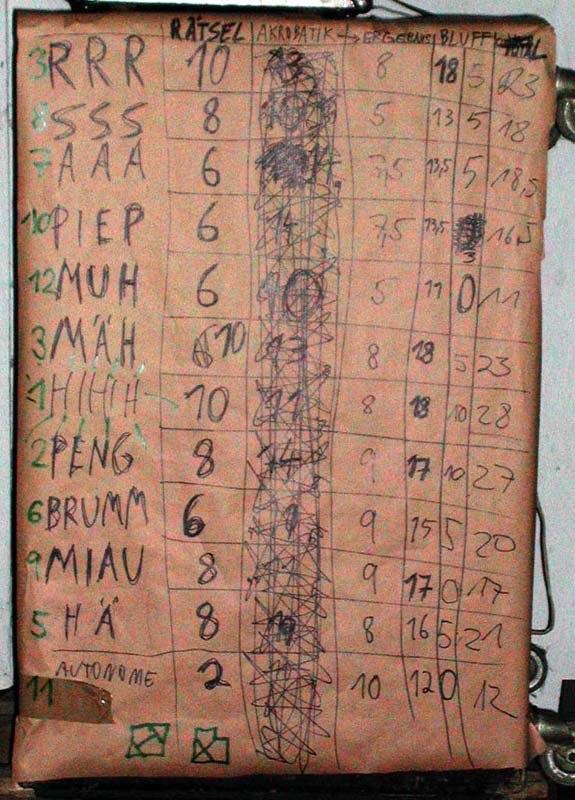 RÄTSEL AKROBATIK → ERGEBNIS BLUFF TOTAL
3 RRR 10 13 8 18 5 23
8 SSS 8 5 13 5 18
7 AAA 6 7,5 13,5 5 18,5
10 PIEP 6 14 7,5 13,5 3 16,5
12 MUH 6 10 5 11 0 11
3 MÄH 10 13 8 18 5 23
1 HIHIH 10 11 8 18 10 28
2 PENG 8 14 9 17 10 27
6 BRUMM 6 9 15 5 20
9 MIAU 8 9 17 0 17
5 HÄ 8 8 16 5 21
11 AUTONOME 2 10 12 0 12